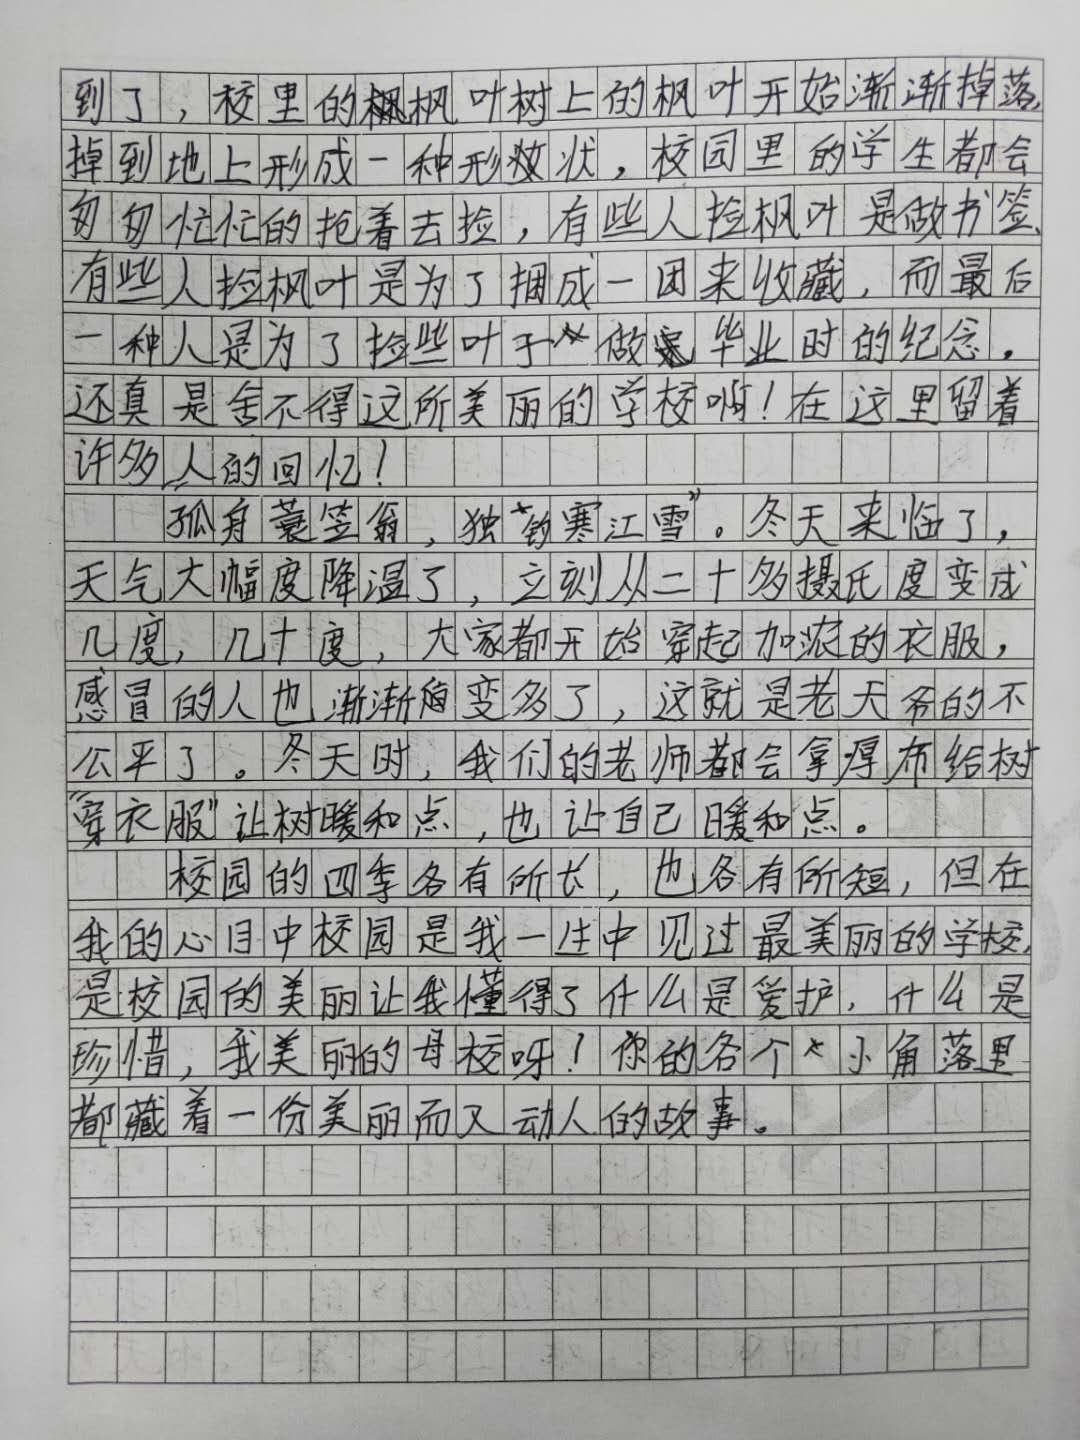 到了，校里的枫叶树上的枫叶开始渐渐掉落，
掉到地上形成一种形状，校园里的学生都会
匆匆忙忙的抢着去捡，有些人捡枫叶是做书签，
有些人捡枫叶是为了捆成一团来收藏，而最后
一种人是为了捡些叶子做毕业时的纪念。
还真是舍不得这所美丽的学校啊！在这里留着
许多人的回忆！
孤舟蓑笠翁，独“钓寒江雪”。冬天来临了，
天气大幅度降温了，立刻从二十多摄氏度变成
几度，几十度，大家都开始穿起加浓的衣服，
感冒的人也渐渐变多了，这就是老天爷的不
公平了。冬天时，我们的老师都会拿厚布给树
“穿衣服”让树暖和点，也让自己暖和点。
校园的四季各有所长，也各有所短，但在
我的心目中校园是我一生中见过最美丽的学校，
是校园的美丽让我懂得了什么是爱护，什么是
珍惜，我美丽的母校呀！你的各个小角落里
都藏着一份美丽而又动人的故事。